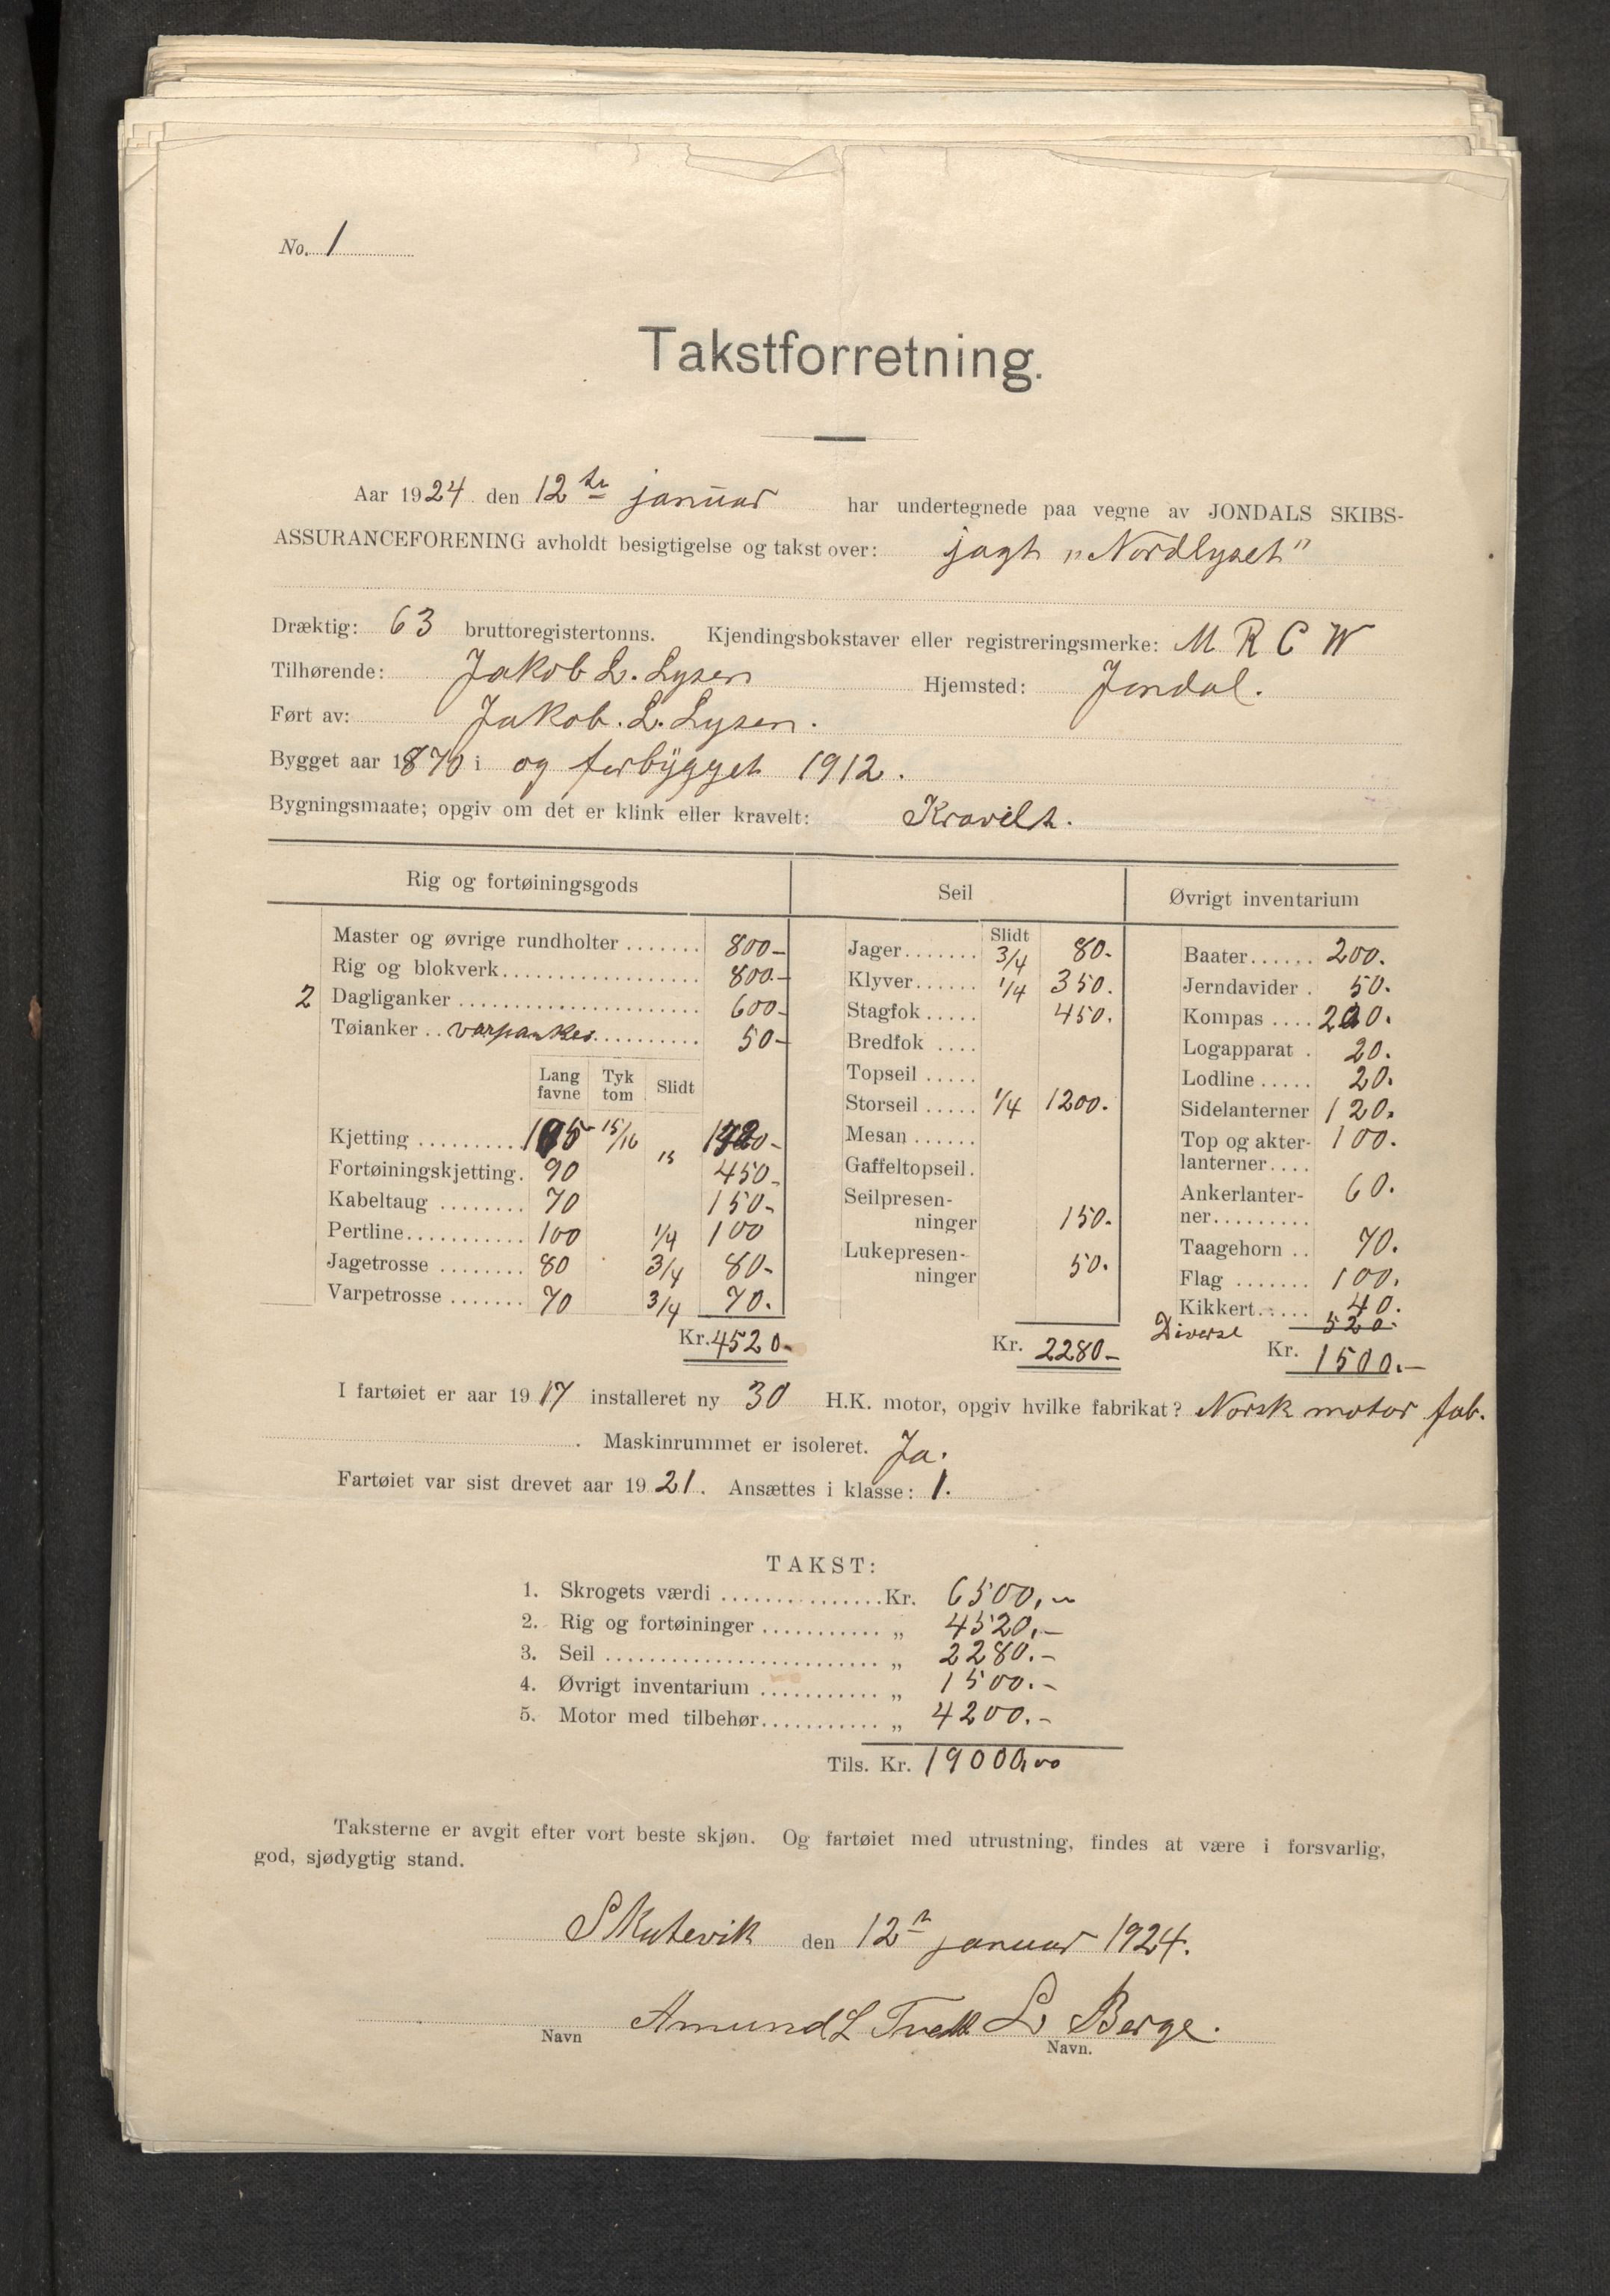 No. 1
Takstforretning.
Aar 1924 den 12te januar har undertegnede paa vegne av JONDALS SKIBS-
ASSURANCEFORENING avholdt besigtigelse og takst over: jagt „Nordlyset"
Dræktig: 63 bruttoregistertonns. Kjendingsbokstaver eller registreringsmerke: M R C W
Tilhørende: Jakob L. Lysen Hjemsted: Jondal.
Ført av: Jakob. L. Lysen.
Bygget aar 1870 i og forbygget 1912.
Bygningsmaate; opgiv om det er klink eller kravelt: Kravelt.
Rig og fortøiningsgods
Master og øvrige rundholter ....... 800-
Rig og blokverk................... 800.-
2 Dagliganker ....................... 600-
Tøianker .. varpanker.......... 50-
Lang favne Tyk tom Slidt
Kjetting ......... 15/16
Fortøiningskjetting. 90 450-
Kabeltaug ........ 70 150-
Pertline........... 100 1/4 100
Jagetrosse ........ 80 3/4 80-
Varpetrosse ....... 70 3/4 70.
Kr. 4520-
Seil
Slidt
Jager....... 3/4 80.
Klyver...... 1/4 350.
Stagfok..... 450.
Bredfok ....
Topseil .....
Storseil ..... 1/4 1200.
Mesan ......
Gaffeltopseil.
Seilpresen-
ninger 150.
Lukepresen-
ninger 50.
Kr. 2280-
Øvrigt inventarium
Baater...... 200.
Jerndavider . 50.
Kompas .... 220.
Logapparat . 20.
Lodline ..... 20.
Sidelanterner 120.
Top og akter- 100.
lanterner....
Ankerlanter- 60.
ner.........
Taagehorn .. 70.
Flag ....... 100.
Kikkert..... 40.
Diverse 520.
Kr. 1500.-
I fartøiet er aar 1917 installeret ny 30 H.K. motor, opgiv hvilke fabrikat? Norsk motor fab.
. Maskinrummet er isoleret. Ja.
Fartøiet var sist drevet aar 1921. Ansættes i klasse: 1.
TAKST:
1. Skrogets værdi ...............Kr. 6500,-
2. Rig og fortøininger ........... „ 4520,-
3. Seil ......................... „ 2280.-
4. Øvrigt inventarium ........... „ 1500.-
5. Motor med tilbehør........... „ 4200.-
Tils. Kr. 19000,00
Taksterne er avgit efter vort beste skjøn. Og fartøiet med utrustning, findes at være i forsvarlig,
god, sjødygtig stand.
Skutevik den 12te januar 1924.
Amund L Tveit L Berge.
Navn Navn.